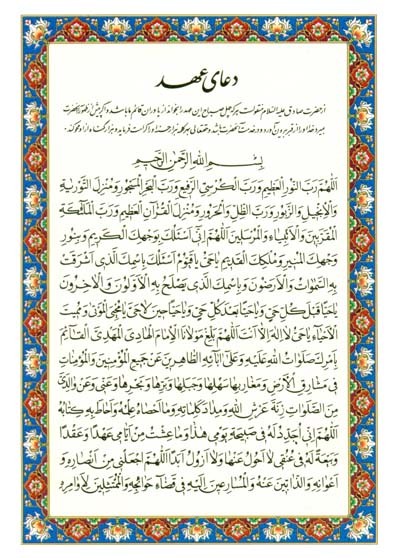 دعای عهد
از حضرت صادق علیه السلام منقولست هرکه چهل صباح این عهد را بخواند از یاوران قائم ما باشد و اگر پیش از ظهور آنحضرت
بمیرد خدا او را از قبر بیرون آورد و در خدمت آنحضرت باشد و حقتعالی بهر کلمه هزار حسنه او را کرامت فرماید و هزار گناه از او محو کند.
بِسْمِ اللهِ الرَّحْمٰنِ الرَّحیمِ
اَللّهُمَّ رَبَّ النُّورِ الْعَظیمِ وَرَبَّ الْکُرْسِیِّ الرَّفیعِ وَرَبَّ الْبَحْرِ الْمَسْجُورِ وَمُنْزِلَ التَّوْریٰةِ
وَالْاِنْجیلِ وَالزَّبُورِ وَرَبَّ الظِّلِّ وَالْحَرُورِ وَمُنْزِلَ الْقُرْآنِ الْعَظیمِ وَرَبَّ الْمَلٰٓئِکَةِ
الْمُقَرَّبینَ وَالْاَنْبِیٰآءِ وَالْمُرْسَلینَ اَللّهُمَّ اِنّی اَسْئَلُکَ بِوَجْهِکَ الْکَریمِ وَبِنُورِ
وَجْهِکَ الْمُنیرِ وَمُلْکِکَ الْقَدیمِ یٰا حَیُّ یٰا قَیُّومُ اَسْئَلُکَ بِاسْمِکَ الَّذی اَشْرَقَتْ
بِهِ السَّمٰوٰاتُ وَالْاَرَضُونَ وَبِاسْمِکَ الَّذی یَصْلَحُ بِهِ الْاَوَّلُونَ وَالْاٰخِرُونَ
یٰا حَیّاً قَبْلَ کُلِّ حَیٍّ وَیٰا حَیّاً بَعْدَ کُلِّ حَیٍّ وَیٰا حَیّاً حینَ لٰا حَیَّ یٰا مُحْیِیَ الْمَوْتیٰ وَمُمیتَ
الْاَحْیٰآءِ یٰا حَیُّ لٰا اِلٰهَ اِلّٰا اَنْتَ اَللّهُمَّ بَلِّغْ مَوْلٰانَا الْاِمٰامَ الْهٰادِیَ الْمَهْدِیَّ الْقٰآئِمَ
بِاَمْرِکَ صَلَوٰاتُ اللهِ عَلَیْهِ وَعَلیٰ اٰبٰآئِهِ الطّٰاهِرینَ عَنْ جَمیعِ الْمُؤْمِنینَ وَالْمُؤْمِنٰاتِ
فی مَشٰارِقِ الْاَرْضِ وَمَغٰارِبِهٰا سَهْلِهٰا وَجَبَلِهٰا وَبَرِّهٰا وَبَحْرِهٰا وَعَنّی وَعَنْ وٰالِدَیَّ
مِنَ الصَّلَوٰاتِ زِنَةَ عَرْشِ اللهِ وَمِدٰادَ کَلِمٰاتِهِ وَمٰا اَحْصٰاهُ عِلْمُهُ وَاَحٰاطَ بِهِ کِتٰابُهُ
اَللّهُمَّ اِنّی اُجَدِّدُ لَهُ فی صَبیحَةِ یَوْمی هٰذٰا وَمٰا عِشْتُ مِنْ اَیّٰامی عَهْداً وَعَقْداً
وَبَیْعَةً لَهُ فی عُنُقی لٰا اَحُولُ عَنْهٰا وَلٰا اَزُولُ اَبَداً اَللّهُمَّ اجْعَلْنی مِنْ اَنْصٰارِهِ وَ
اَعْوٰانِهِ وَالذّٰابّینَ عَنْهُ وَالْمُسٰارِعینَ اِلَیْهِ فی قَضٰآءِ حَوٰآئِجِهِ وَالْمُمْتَثِلینَ لِاَوٰامِرِهِ